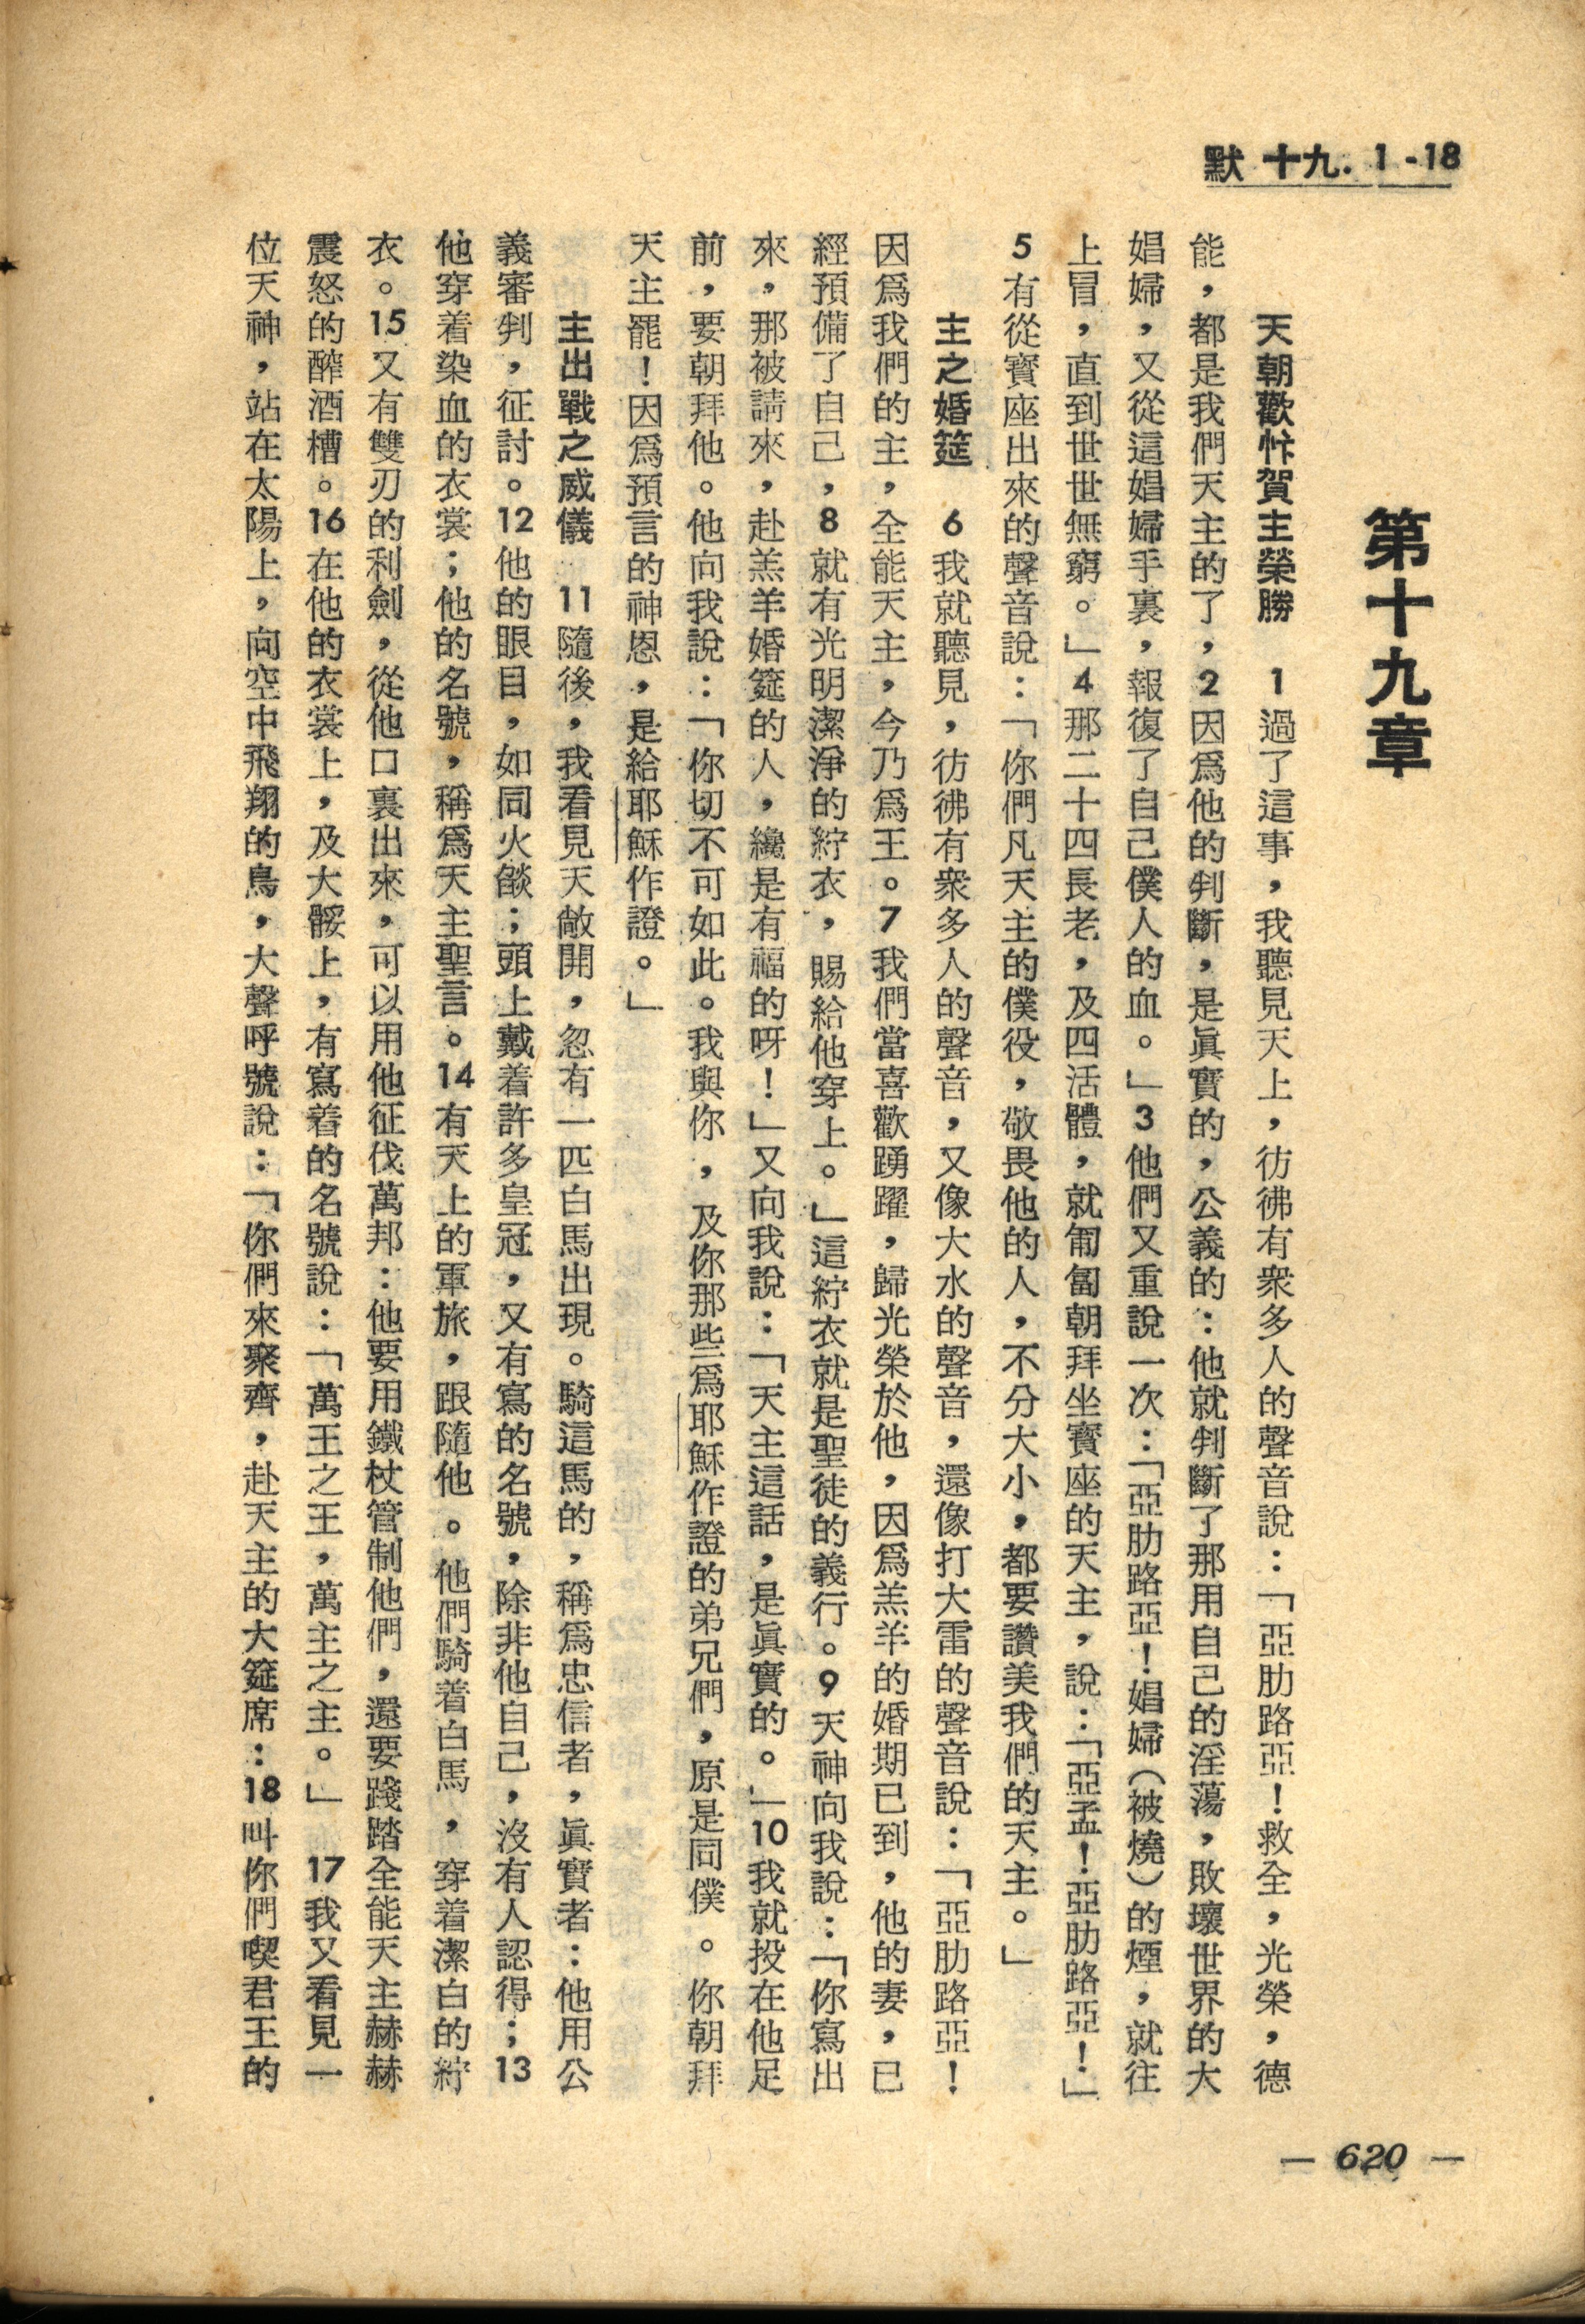 默 十九. 1 -18
第十九章
天朝歡忭賀主榮勝 1 過了這事，我聽見天上，彷彿有衆多人的聲音說：「亞肋路亞！救全，光榮，德
能，都是我們天主的了，2因爲他的判斷，是眞實的，公義的：他就判斷了那用自己的淫蕩，敗壞世界的大
娼婦，又從這娼婦手裏，報復了自己僕人的血。」3他們又重說一次：「亞肋路亞！娼婦（被燒）的煙，就往
上冒，直到世世無窮。」4那二十四長老，及四活體，就匍匐朝拜坐寶座的天主，說：「亞孟！亞肋路亞！」
5有從寶座出來的聲音說：「你們凡天主的僕役，敬畏他的人，不分大小，都要讚美我們的天主。」
主之婚筵 6 我就聽見，彷彿有衆多人的聲音，又像大水的聲音，還像打大雷的聲音說：「亞肋路亞！
因爲我們的主，全能天主，今乃爲王。7我們當喜歡踴躍，歸光榮於他，因爲羔羊的婚期已到，他的妻，已
經預備了自己，8就有光明潔淨的紵衣，賜給他穿上。」這紵衣就是聖徒的義行。9天神向我說：「你寫出
來，那被請來，赴羔羊婚筵的人，纔是有福的呀！」又向我說：「天主這話，是眞實的。」10我就投在他足
前，要朝拜他。他向我說：「你切不可如此。我與你，及你那些爲耶穌作證的弟兄們，原是同僕。你朝拜
天主罷！因爲預言的神恩，是給耶穌作證。」
主出戰之威儀 11隨後，我看見天敞開，忽有一匹白馬出現。騎這馬的，稱爲忠信者，眞實者：他用公
義審判，征討。12他的眼目，如同火燄；頭上戴着許多皇冠，又有寫的名號，除非他自己，沒有人認得；13
他穿着染血的衣裳；他的名號，稱爲天主聖言。14有天上的軍旅，跟隨他。他們騎着白馬，穿着潔白的紵
衣。15又有雙刃的利劍，從他口裏出來，可以用他征伐萬邦：他要用鐵杖管制他們，還要踐踏全能天主赫赫
震怒的醡酒槽。16在他的衣裳上，及大骽上，有寫着的名號說：「萬王之王，萬主之主。」 17我又看見一
位天神，站在太陽上，向空中飛翔的鳥，大聲呼號說：「你們來聚齊，赴天主的大筵席：18叫你們喫君王的
— 620 —